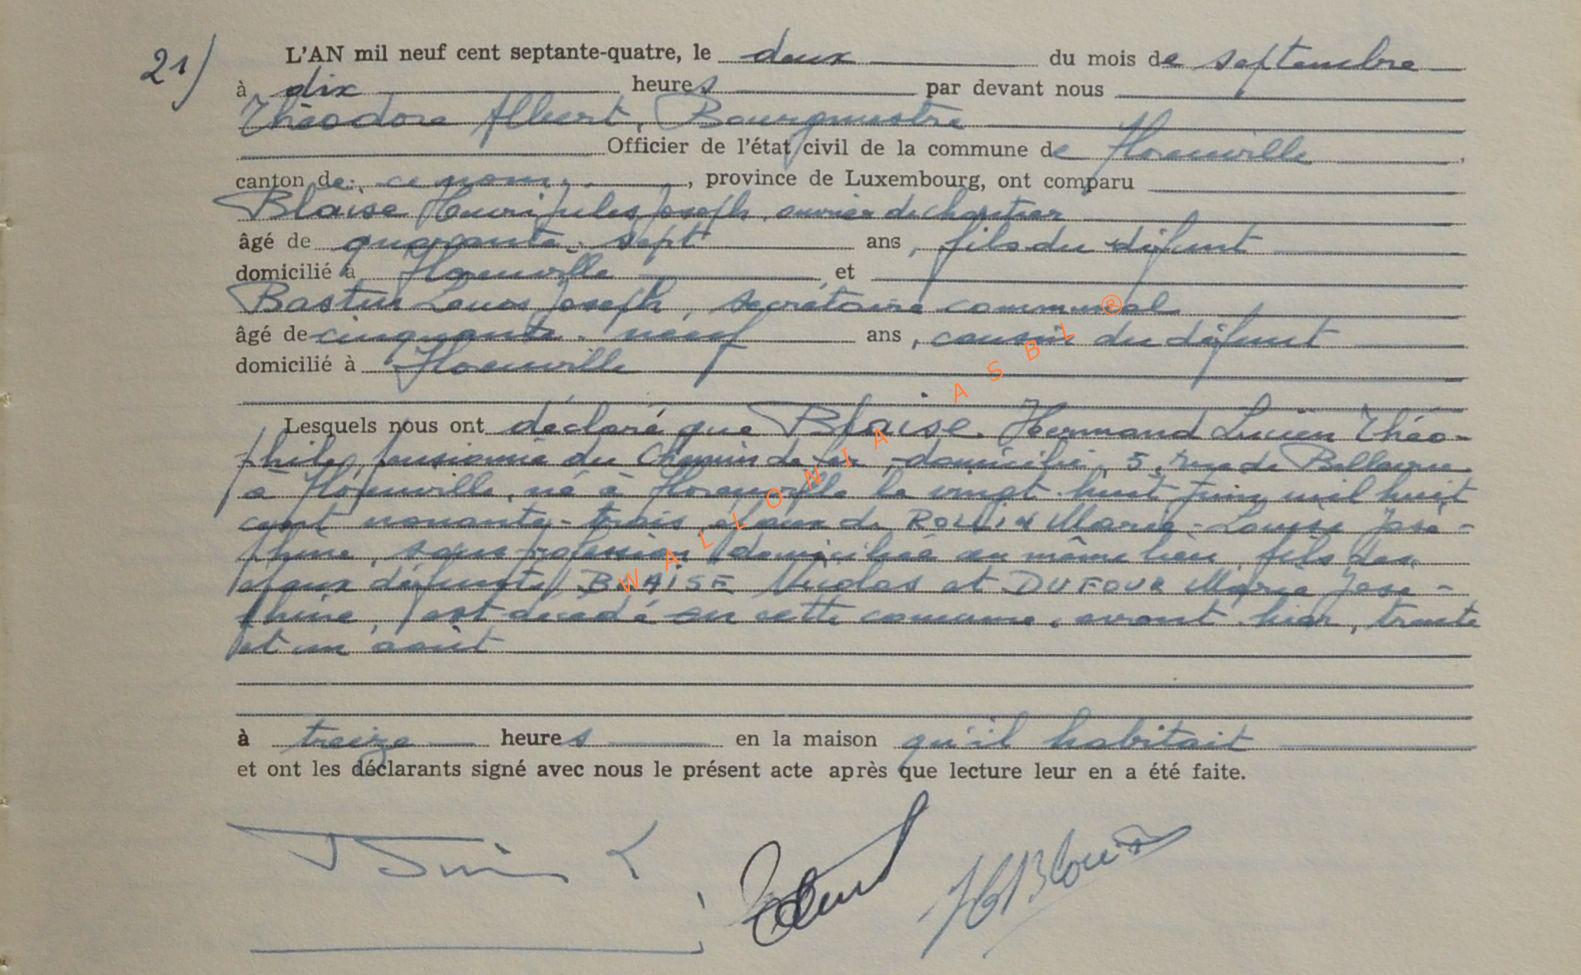 21) L'AN mil neuf cent septante-quatre, le deux du mois de septembre
à dix heures par devant nous
Théodore Albert, Bourgmestre
Officier de l'état civil de la commune de Florenville,
canton de: ce nom, , province de Luxembourg, ont comparu
Blaise Henri Jules Joseph, ouvrier de chantier
âgé de quarante-sept ans, fils du défunt
domicilié à Florenville, et
Louis Joseph, secrétaire communal
âgé de cinquante-neuf ans, cousin du défunt
domicilié à Florenville
Lesquels nous ont déclaré que Blaise, Hermand Lucien Théo-
phile, pensionné du Chemin de fer, domicilié, 5, rue de
à Florenville, né à Florenville le vingt-huit juin mil huit
cent nonante-trois, époux de ROLLIN Marie-Louise José-
phine, sans profession, domiciliée au même lieu, fils des
époux défunts, BLAISE Nicolas et DUFOUR Marie José-
phine, est décédé en cette commune, avant hier, trente
et un août
à treize heures en la maison qu'il habitait
et ont les déclarants signé avec nous le présent acte après que lecture leur en a été faite.
WALLONIA ASBL ®